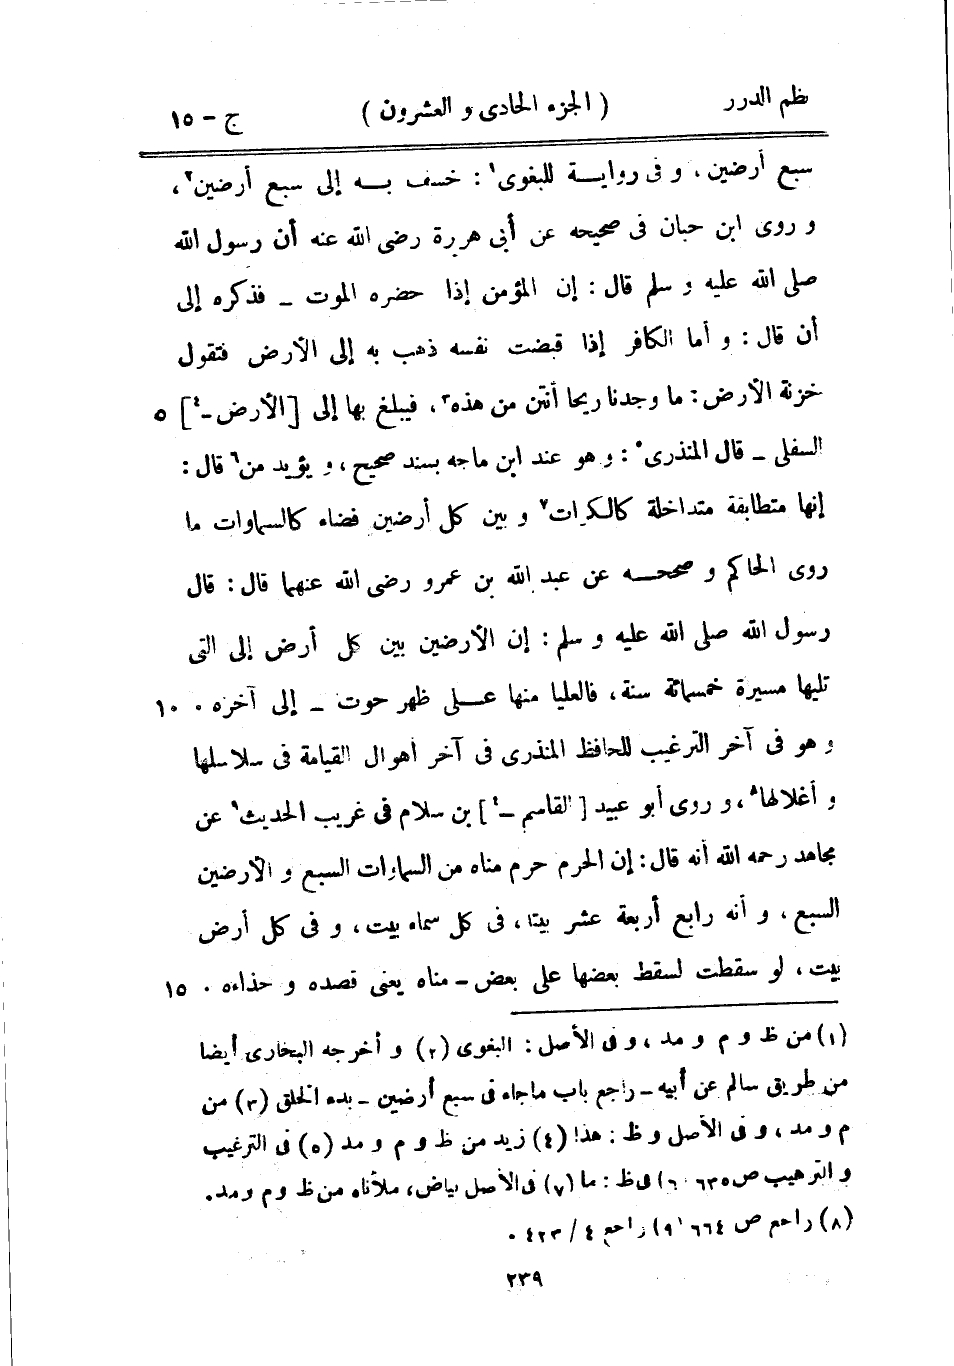 نظم الدرر ( الجزء الحادى و العشرون ) ج – ١٥
سبع أرضين ، و فى رواية للبغوى١ : خسف به إلى سبع أرضين٢ ،
و روى ابن حبان فى صحيحه عن أبى هريرة رضى الله عنه أن رسول الله
صلى الله عليه و سلم قال : إن المؤمن إذا حضره الموت – فذكره إلى
أن قال : و أما الكافر إذا قبضت نفسه ذهب به إلى الأرض فتقول
خزنة الأرض : ما وجدنا ريحا أنتن من هذه٣ ، فيبلغ بها إلى [ الأرض –٤ ] ٥
السفلى – قال المنذرى٥ : و هو عند ابن ماجه بسند صحيح ، و يؤيد من٦ قال :
إنها متطابقة متداخلة كالكرات٧ و بين كل أرضين فضاء كالسماوات ما
روى الحاكم و صححه عن عبد الله بن عمرو رضى الله عنهما قال : قال
رسول الله صلى الله عليه و سلم : إن الأرضين بين كل أرض إلى التى
تليها مسيرة خمسمائة سنة ، فالعليا منها على ظهر حوت – إلى آخره . ١٠
و هو فى آخر الترغيب للحافظ المنذرى فى آخر أهوال القيامة فى سلاسلها
و أغلالها٨ ، و روى أبو عبيد [ القاسم –٤ ] بن سلام فى غريب الحديث٩ عن
مجاهد رحمه الله أنه قال : إن الحرم حرم مناه من السماوات السبع و الأرضين
السبع ، و أنه رابع أربعة عشر بيتا ، فى كل سماء بيت ، و فى كل أرض
بيت ، لو سقطت لسقط بعضها على بعض – مناه يعنى قصده و حذاءه . ١٥
(١) من ظ و م و مد ، و فى الأصل : البغوى (٢) و أخرجه البخارى أيضا
من طريق سالم عن أبيه – راجع باب ماجاء فى سبع أرضين – بدء الخلق (٣) من
م و مد ، و فى الأصل و ظ : هذا (٤) زيد من ظ و م و مد (٥) فى الترغيب
و الترهيب ص ٦٣٥ (٦) فى ظ : ما (٧) فى الأصل بياض ، ملأناه من ظ و م و مد .
(٨) راجع ص ٦٦٤ (٩) راجع ٤ / ٤٢٣ .
٢٣٩